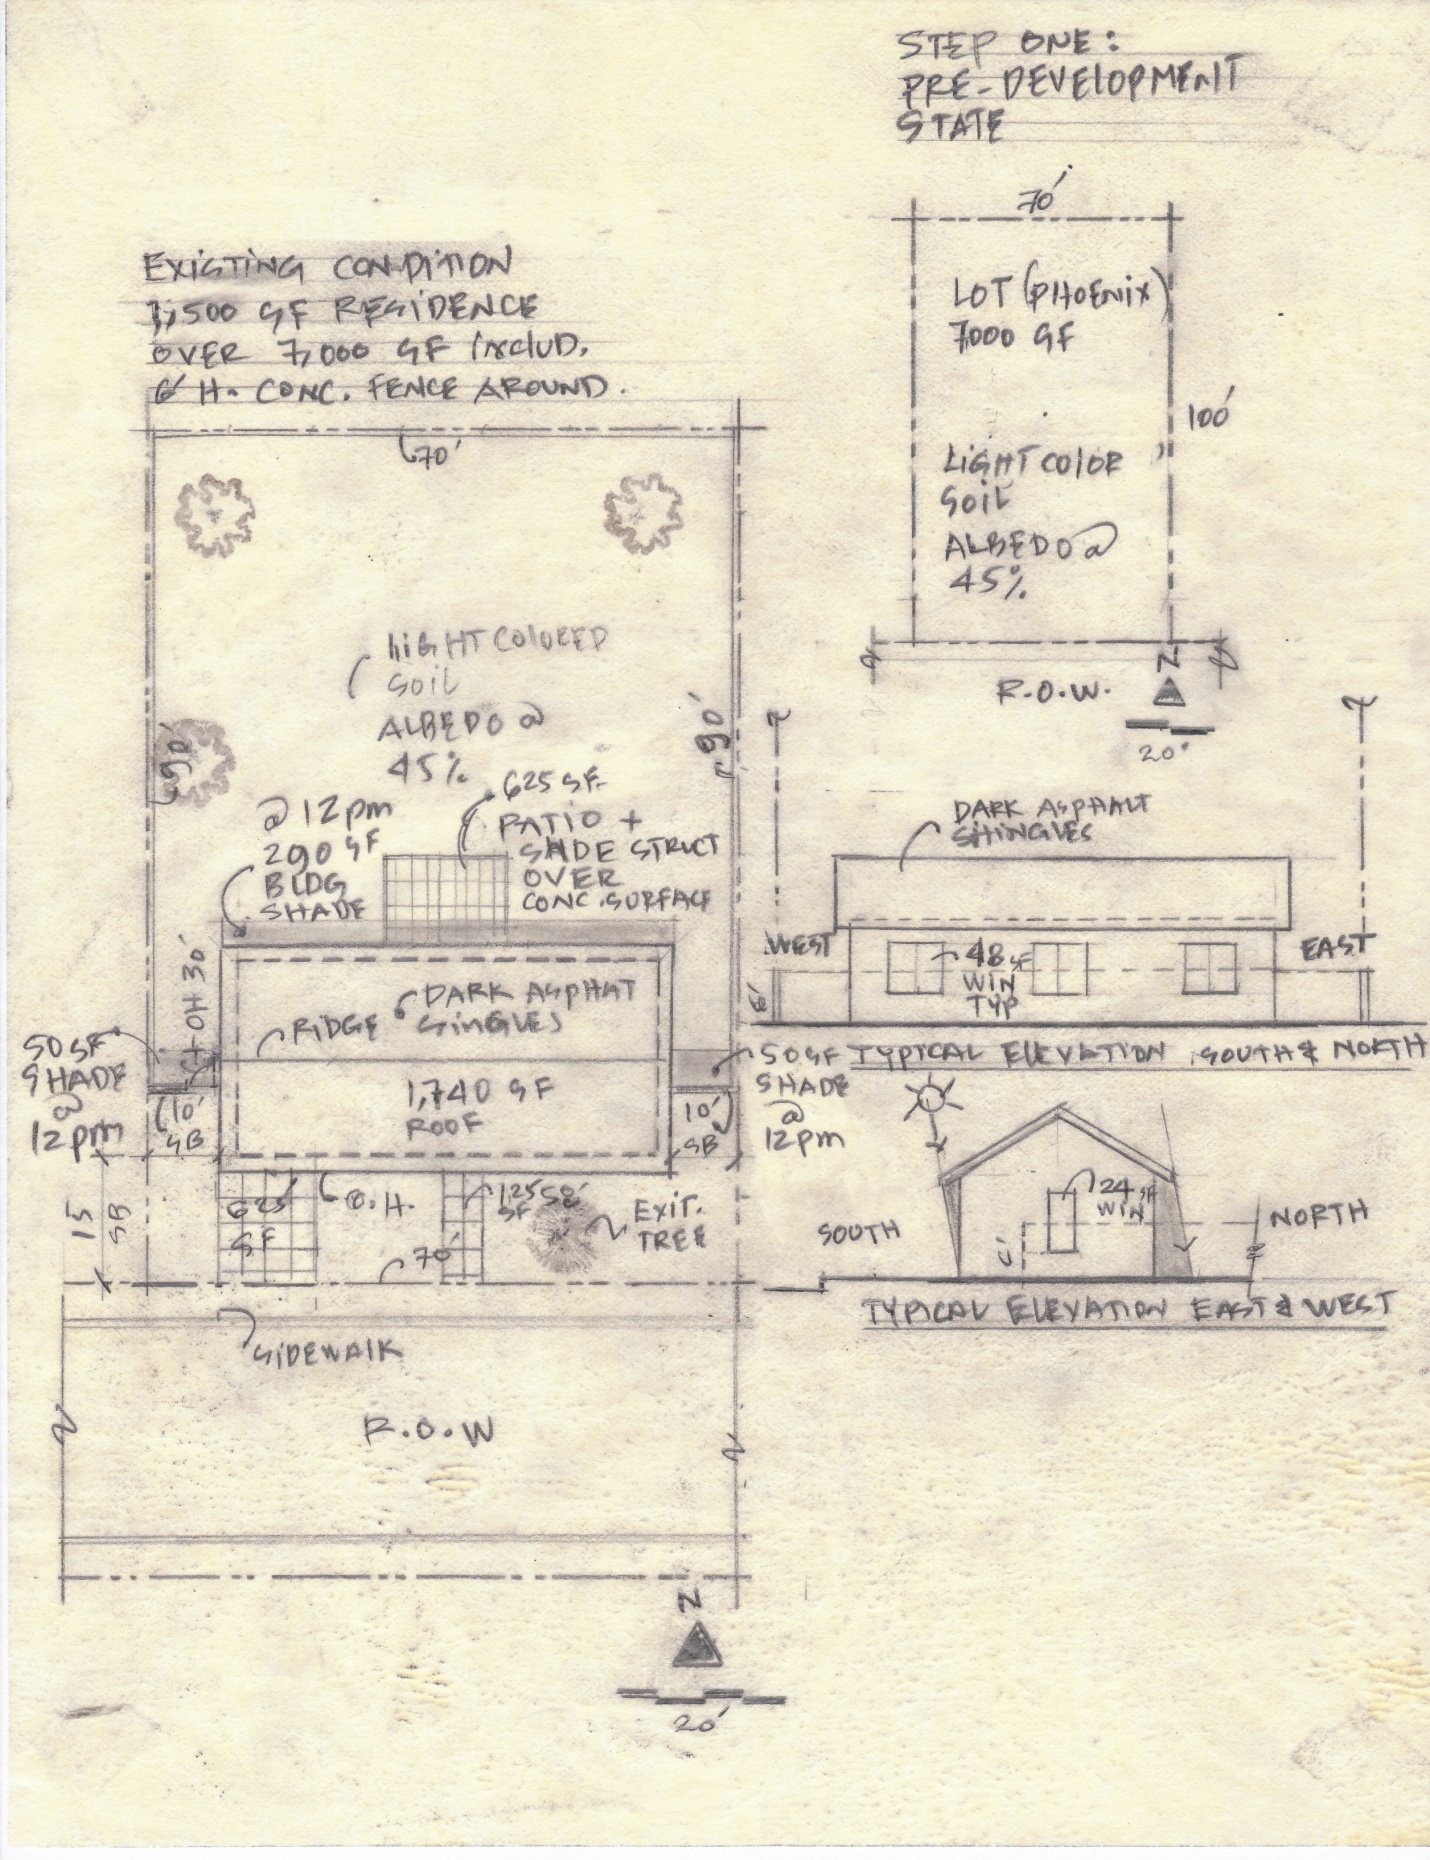 STEP ONE:
PRE-DEVELOPMENT
STATE
70'
LOT (PHOENIX)
7000 SF
100'
LIGHT COLOR
SOIL
ALBEDO @
45%
R.O.W.
N
20'
EXISTING CONDITION
1,500 SF RESIDENCE
OVER 7,000 SF INCLUD.
6' H. CONC. FENCE AROUND.
70'
LIGHT COLORED
SOIL
ALBEDO @
45%
90'
90'
@ 12pm
290 SF
BLDG
SHADE
625 SF.
PATIO +
SHDE STRUCT
OVER
CONC. SURFACE
OH 30'
DARK ASPHAT
SINGLES
RIDGE
1,740 SF
ROOF
50 SF
SHADE
@
12pm
10'
SB
50 SF
SHADE
@
12pm
10'
SB
15
SB
625
SF
O.H.
125
SF
EXIT.
TREE
70'
SIDEWALK
R.O.W
N
20'
DARK ASPHALT
SHINGLES
WEST
EAST
48 SF
WIN
TYP
6'
TYPICAL ELEVATION SOUTH & NORTH
24 SF
WIN
SOUTH
NORTH
6'
TYPICAL ELEVATION EAST & WEST